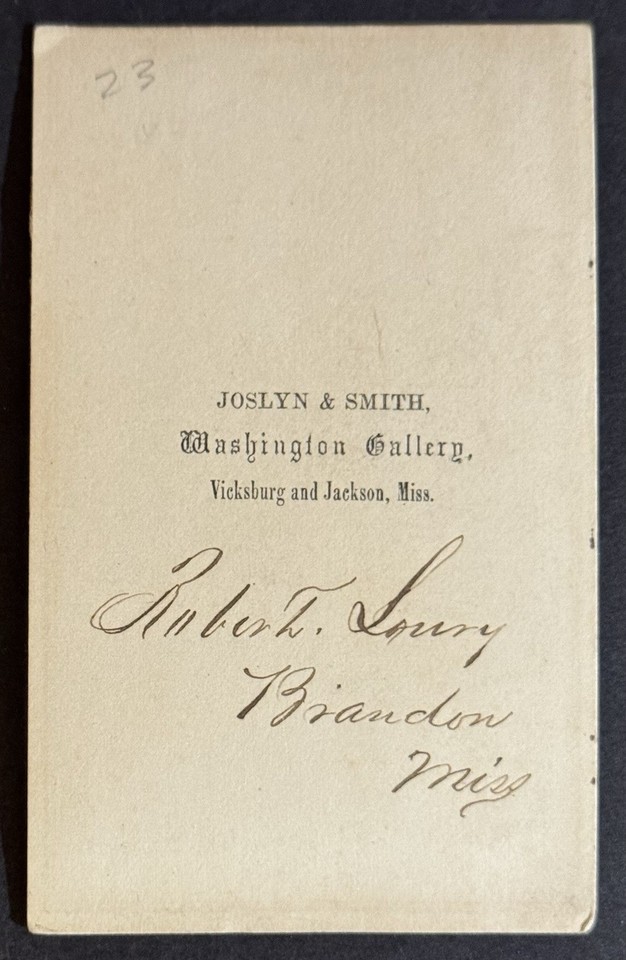 23
JOSLYN & SMITH,
Washington Gallery,
Vicksburg and Jackson, Miss.
Robert. Lowry
Brandon
Miss